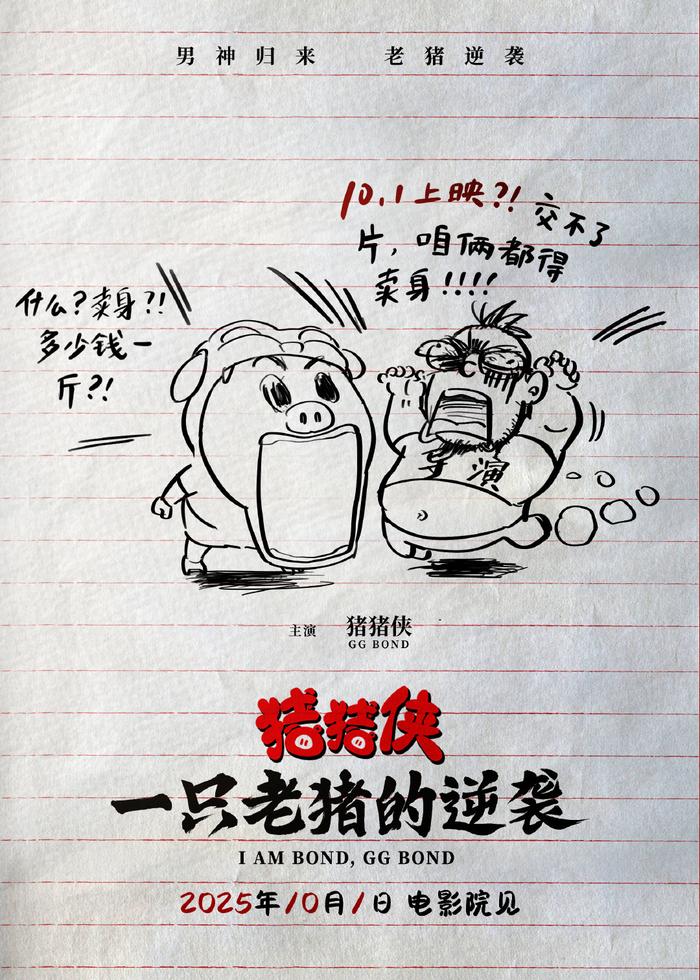 男神归来 老猪逆袭
10.1上映?! 交不了
片，咱俩都得
卖身!!!!
什么?卖身?!
多少钱一
斤?!
导演
主演 猪猪侠
GG BOND
猪猪侠
一只老猪的逆袭
I AM BOND, GG BOND
2025年10月1日 电影院见